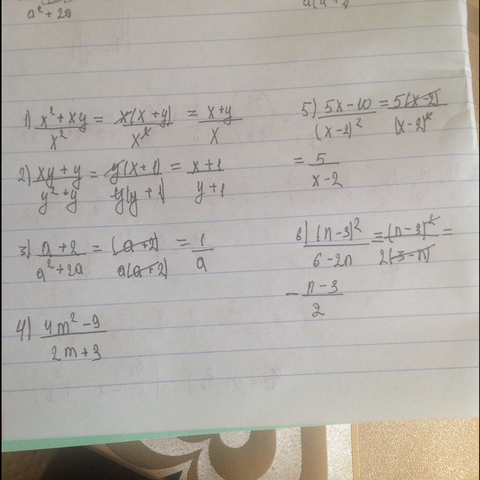 a² + 2a
1) x² + xy / x² = x(x + y) / x² = x + y / x
2) xy + y / y² + y = y(x + 1) / y(y + 1) = x + 1 / y + 1
3) a + 2 / a² + 2a = (a + 2) / a(a + 2) = 1 / a
4) 4m² - 9 / 2m + 3
5) 5x - 10 / (x - 2)² = 5(x - 2) / (x - 2)²
= 5 / x - 2
6) (n - 3)² / 6 - 2n = (n - 3)² / 2(3 - n) =
- n - 3 / 2